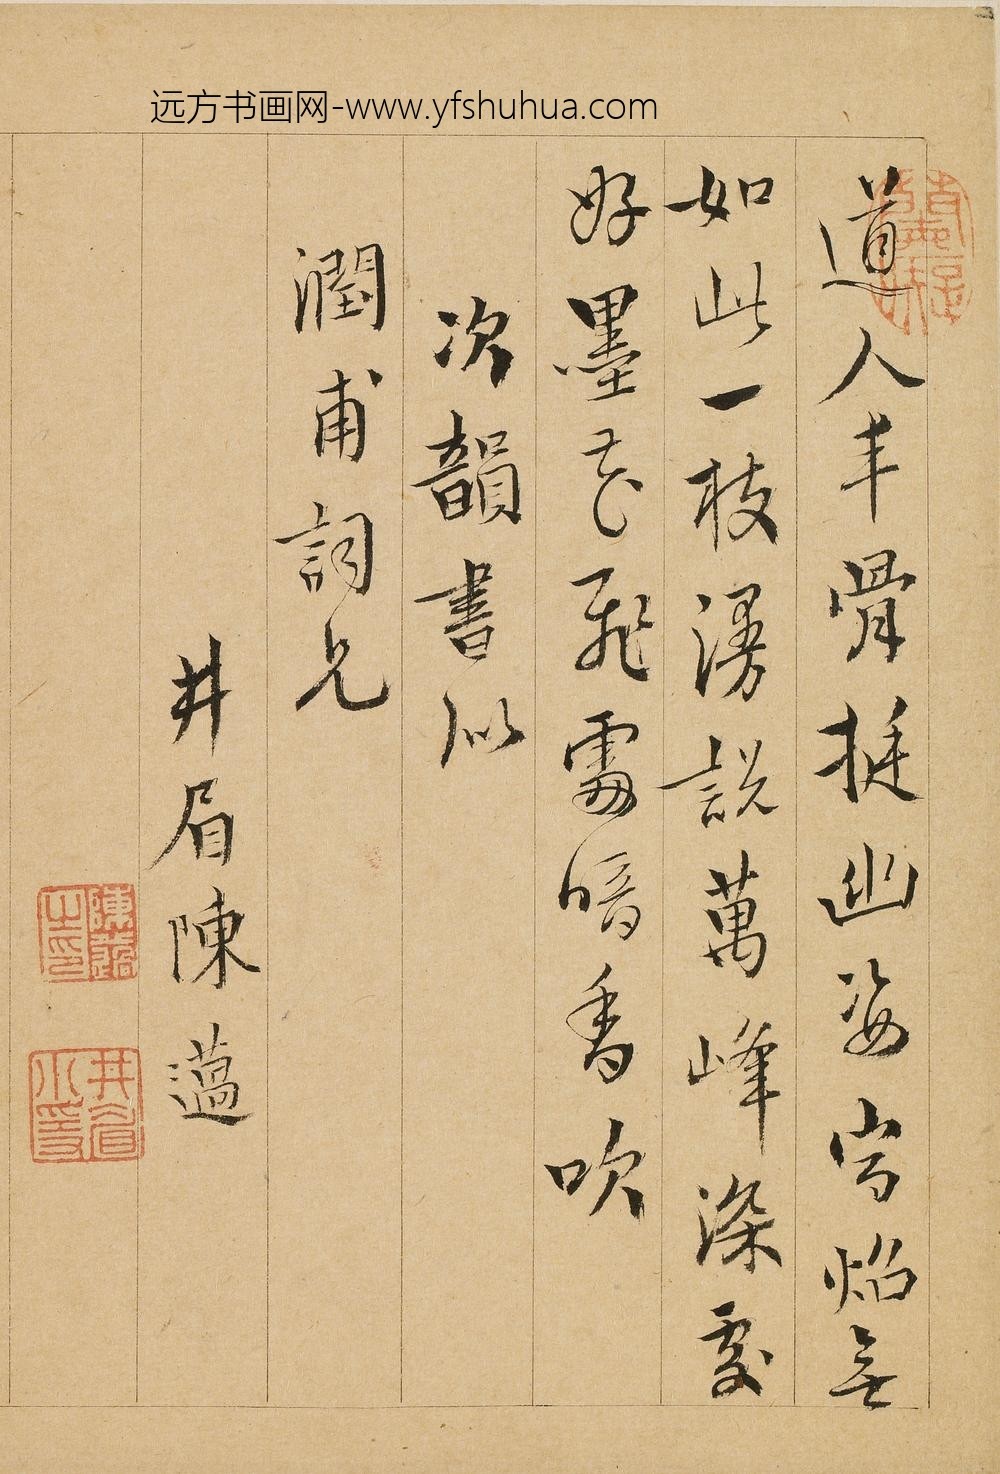 远方书画网-www.yfshuhua.com
道人丰骨挺幽姿宁焰無
如此一枝漫說萬峰深處
好墨花飛雪暗香吹
次韻書似
潤甫詞兄
井眉陳邁